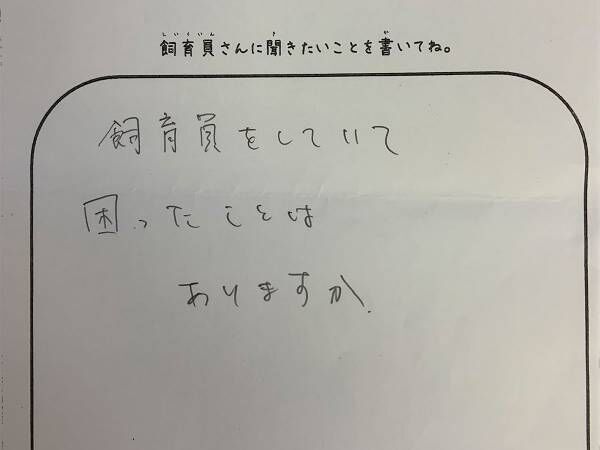 飼育員さんに聞きたいことを書いてね。
飼育員をしていて
困ったことは
ありますか.